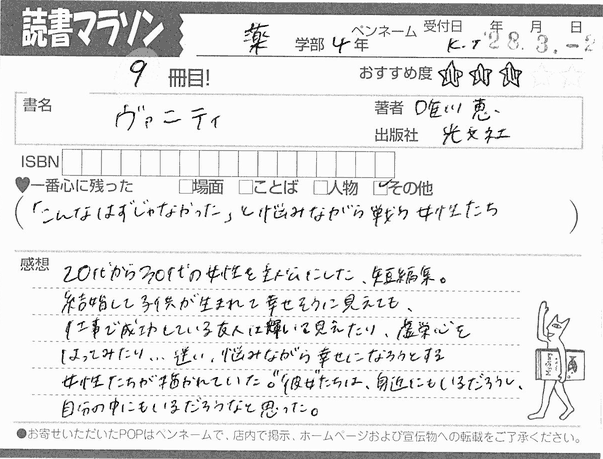 読書マラソン
薬 学部 4年 ペンネーム K.T 受付日 '28.3.-2 年 月 日
9 冊目! おすすめ度 ★★★☆☆
書名 ヴァニティ 著者 唯川 恵
出版社 光文社
ISBN
♥一番心に残った □場面 □ことば □人物 ☑その他
(「こんなはずじゃなかった」と悩みながら戦う女性たち)
感想
20代から30代の女性を主人公にした、短編集。
結婚して子供が生まれて幸せそうに見えても、
仕事で成功している友人は輝いて見えたり、虚栄心を
はってみたり…迷い、悩みながら幸せになろうとする
女性たちが描かれていた。"彼女"たちは、身近にもいるだろうし、
自分の中にもいるだろうなと思った。
●お寄せいただいたPOPはペンネームで、店内で掲示、ホームページおよび宣伝物への転載をご了承ください。